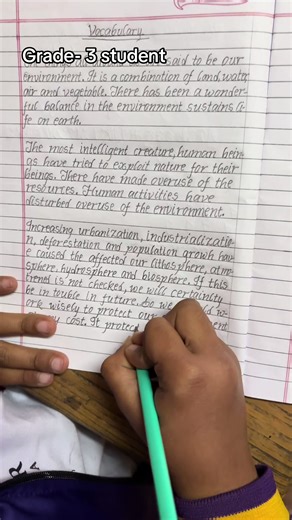 Vocabulary
Grade- 3 student
said to be our
environment. It is a combination of land, water
air and vegetable. There has been a wonder-
ful balance in the environment sustains li-
fe on earth.
The most intelligent creature, human bein-
gs have tried to exploit nature for their
beings. There have made overuse of the
resources. Human activities have
disturbed overuse of the environment.
Increasing urbanization, industrializatio-
n, deforestation and population growth hav-
e caused the affected our lithosphere, atmo-
sphere, hydrosphere and biosphere. If this
trend is not checked, we will certainty
be in touble in future. So we
ork wisely to protect our
cost. It protec